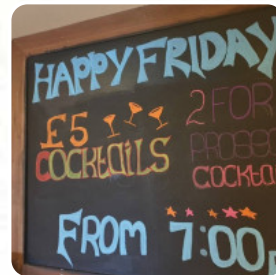 HAPPY FRIDAY
£5
COCKTAILS
2 FOR
PROSEC
COCKTA
FROM 7:00